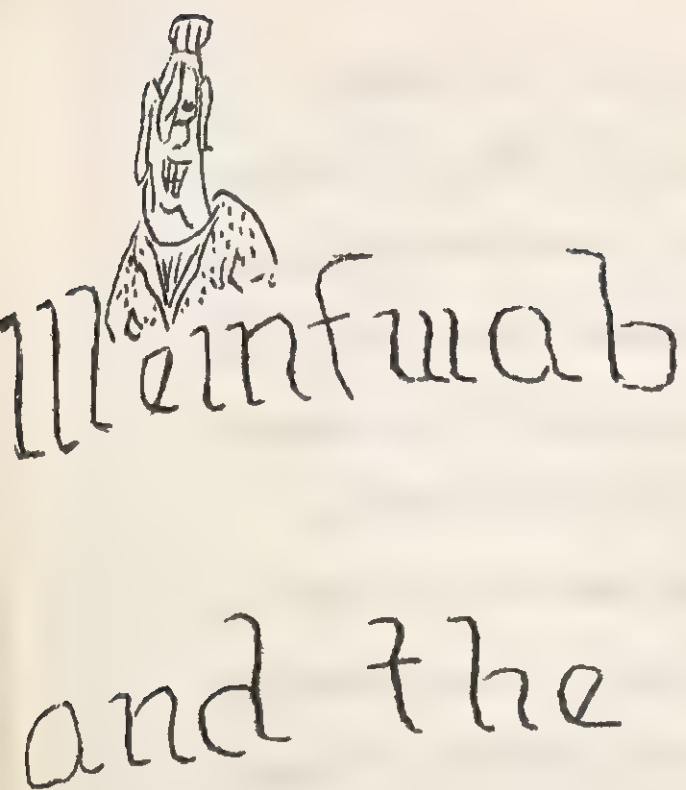 Meinfwab
and the